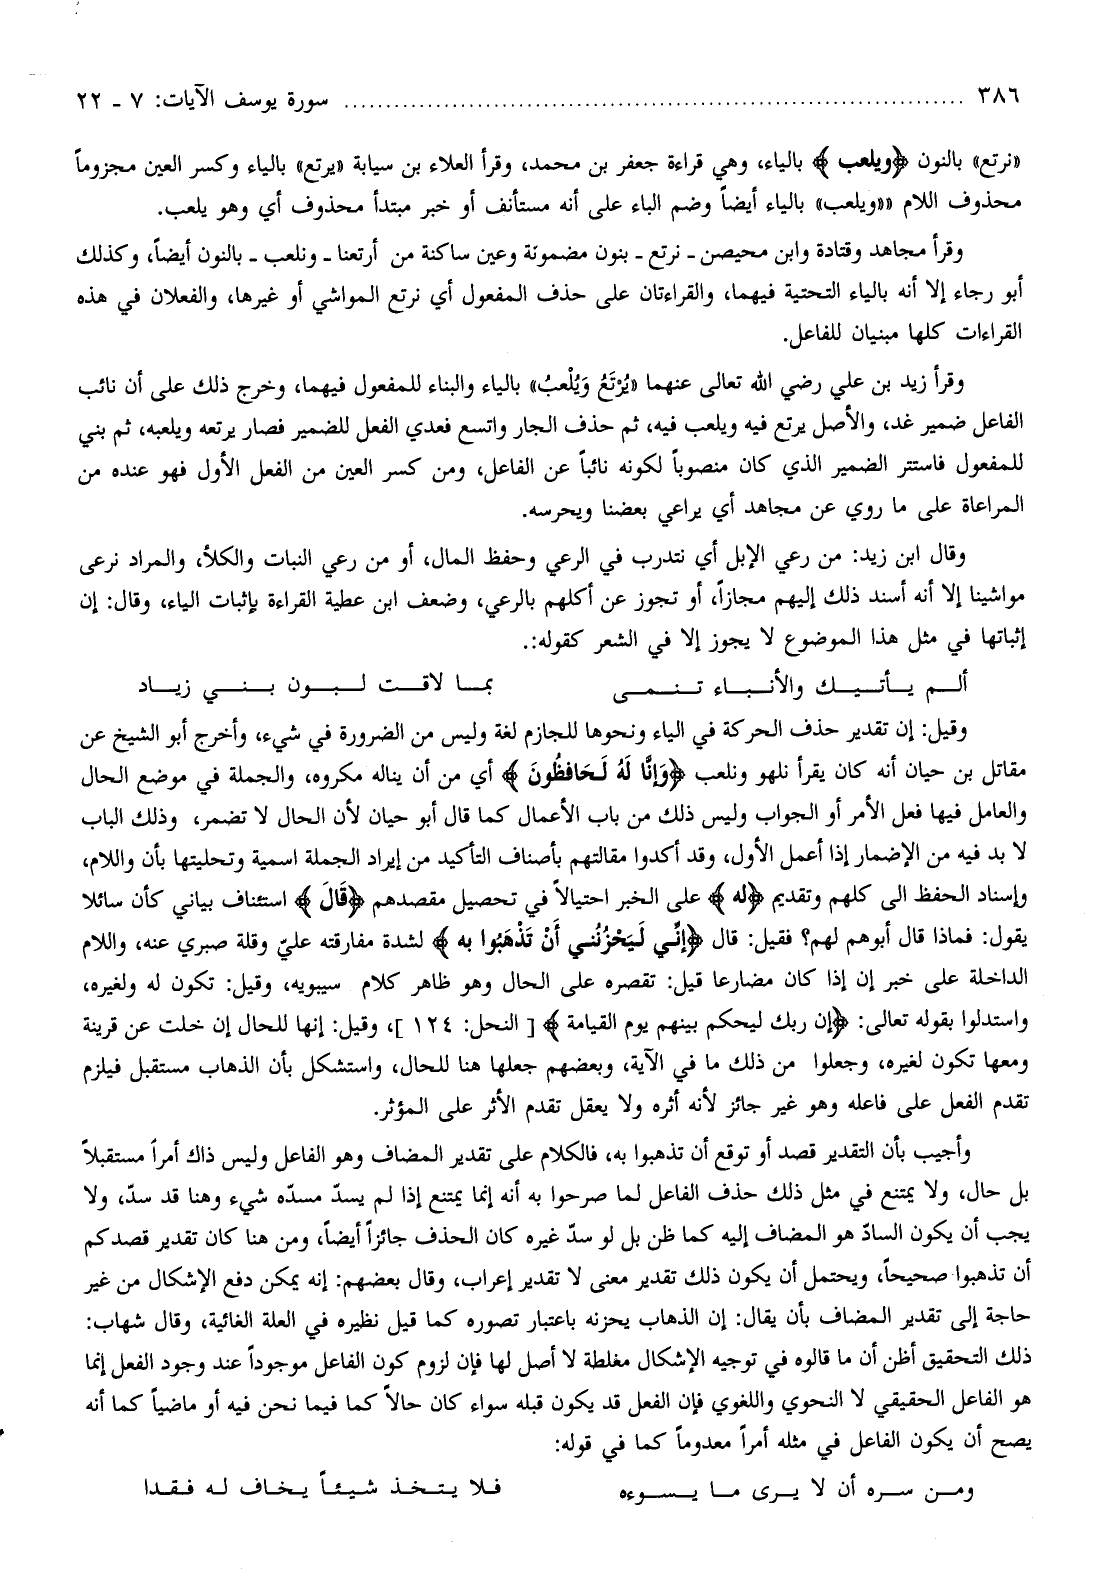 ٣٨٦ ........................................................................ سورة يوسف الآيات: ٧ ـ ٢٢
«نرتع» بالنون ﴿ويلعب﴾ بالياء، وهي قراءة جعفر بن محمد، وقرأ العلاء بن سيابة «يرتع» بالياء وكسر العين مجزوماً
محذوف اللام ««ويلعب» بالياء أيضاً وضم الباء على أنه مستأنف أو خبر مبتدأ محذوف أي وهو يلعب.
وقرأ مجاهد وقتادة وابن محيصن ـ نرتع ـ بنون مضمونة وعين ساكنة من أرتعنا ـ ونلعب ـ بالنون أيضاً، وكذلك
أبو رجاء إلا أنه بالياء التحتية فيهما، والقراءتان على حذف المفعول أي نرتع المواشي أو غيرها، والفعلان في هذه
القراءات كلها مبنيان للفاعل.
وقرأ زيد بن علي رضي الله تعالى عنهما «يُرْتَعُ وَيُلْعبُ» بالياء والبناء للمفعول فيهما، وخرج ذلك على أن نائب
الفاعل ضمير غد، والأصل يرتع فيه ويلعب فيه، ثم حذف الجار واتسع فعدي الفعل للضمير فصار يرتعه ويلعبه، ثم بني
للمفعول فاستتر الضمير الذي كان منصوباً لكونه نائباً عن الفاعل، ومن كسر العين من الفعل الأول فهو عنده من
المراعاة على ما روي عن مجاهد أي يراعي بعضنا ويحرسه.
وقال ابن زيد: من رعي الإبل أي نتدرب في الرعي وحفظ المال، أو من رعي النبات والكلأ، والمراد نرعى
مواشينا إلا أنه أسند ذلك إليهم مجازاً، أو تجوز عن أكلهم بالرعي، وضعف ابن عطية القراءة بإثبات الياء، وقال: إن
إثباتها في مثل هذا الموضوع لا يجوز إلا في الشعر كقوله:.
ألم يأتيك والأنباء تنمى بما لاقت لبون بني زياد
وقيل: إن تقدير حذف الحركة في الياء ونحوها للجازم لغة وليس من الضرورة في شيء، وأخرج أبو الشيخ عن
مقاتل بن حيان أنه كان يقرأ نلهو ونلعب ﴿وَإِنَّا لَهُ لَحَافظُونَ﴾ أي من أن يناله مكروه، والجملة في موضع الحال
والعامل فيها فعل الأمر أو الجواب وليس ذلك من باب الأعمال كما قال أبو حيان لأن الحال لا تضمر، وذلك الباب
لا بد فيه من الإضمار إذا أعمل الأول، وقد أكدوا مقالتهم بأصناف التأكيد من إيراد الجملة اسمية وتحليتها بأن واللام،
وإسناد الحفظ الى كلهم وتقديم ﴿له﴾ على الخبر احتيالاً في تحصيل مقصدهم ﴿قَالَ﴾ استئناف بياني كأن سائلا
يقول: فماذا قال أبوهم لهم؟ فقيل: قال ﴿إنِّي لَيَحْزُنُني أَنْ تَذْهَبُوا به﴾ لشدة مفارقته عليّ وقلة صبري عنه، واللام
الداخلة على خبر إن إذا كان مضارعا قيل: تقصره على الحال وهو ظاهر كلام سيبويه، وقيل: تكون له ولغيره،
واستدلوا بقوله تعالى: ﴿إن ربك ليحكم بينهم يوم القيامة﴾ [ النحل: ١٢٤ ]، وقيل: إنها للحال إن خلت عن قرينة
ومعها تكون لغيره، وجعلوا من ذلك ما في الآية، وبعضهم جعلها هنا للحال، واستشكل بأن الذهاب مستقبل فيلزم
تقدم الفعل على فاعله وهو غير جائز لأنه أثره ولا يعقل تقدم الأثر على المؤثر.
وأجيب بأن التقدير قصد أو توقع أن تذهبوا به، فالكلام على تقدير المضاف وهو الفاعل وليس ذاك أمراً مستقبلاً
بل حال، ولا يمتنع في مثل ذلك حذف الفاعل لما صرحوا به أنه إنما يمتنع إذا لم يسدّ مسدّه شيء وهنا قد سدّ، ولا
يجب أن يكون السادّ هو المضاف إليه كما ظن بل لو سدّ غيره كان الحذف جائزاً أيضاً، ومن هنا كان تقدير قصدكم
أن تذهبوا صحيحاً، ويحتمل أن يكون ذلك تقدير معنى لا تقدير إعراب، وقال بعضهم: إنه يمكن دفع الإشكال من غير
حاجة إلى تقدير المضاف بأن يقال: إن الذهاب يحزنه باعتبار تصوره كما قيل نظيره في العلة الغائية، وقال شهاب:
ذلك التحقيق أظن أن ما قالوه في توجيه الإشكال مغلطة لا أصل لها فإن لزوم كون الفاعل موجوداً عند وجود الفعل إنما
هو الفاعل الحقيقي لا النحوي واللغوي فإن الفعل قد يكون قبله سواء كان حالاً كما فيما نحن فيه أو ماضياً كما أنه
يصح أن يكون الفاعل في مثله أمراً معدوماً كما في قوله:
ومن سره أن لا يرى ما يسوءه فلا يتخذ شيئاً يخاف له فقدا